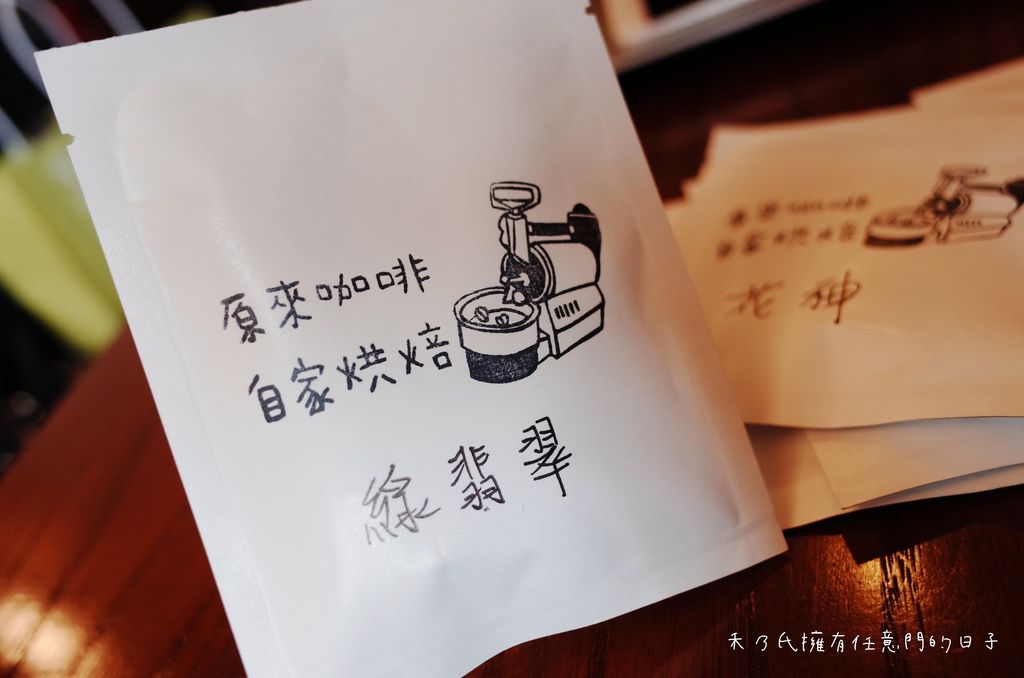 原來咖啡
自家烘焙
綠翡翠
原來咖啡
自家烘焙
花神
禾乃氏擁有任意門的日子